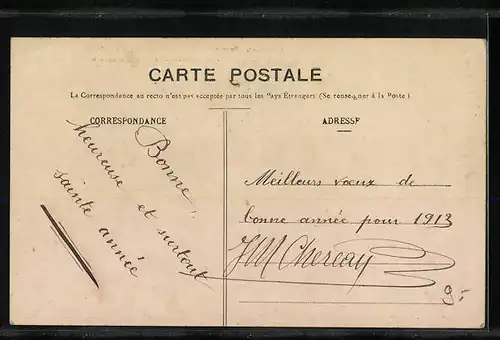 CARTE POSTALE
La Correspondance au recto n'est pas acceptée par tous les Pays Étrangers (Se renseigner à la Poste)
CORRESPONDANCE
Bonne!
heureuse et surtout
sainte année
ADRESSE
Meilleurs voeux de
bonne année pour 1913
JM Chereau
9.-